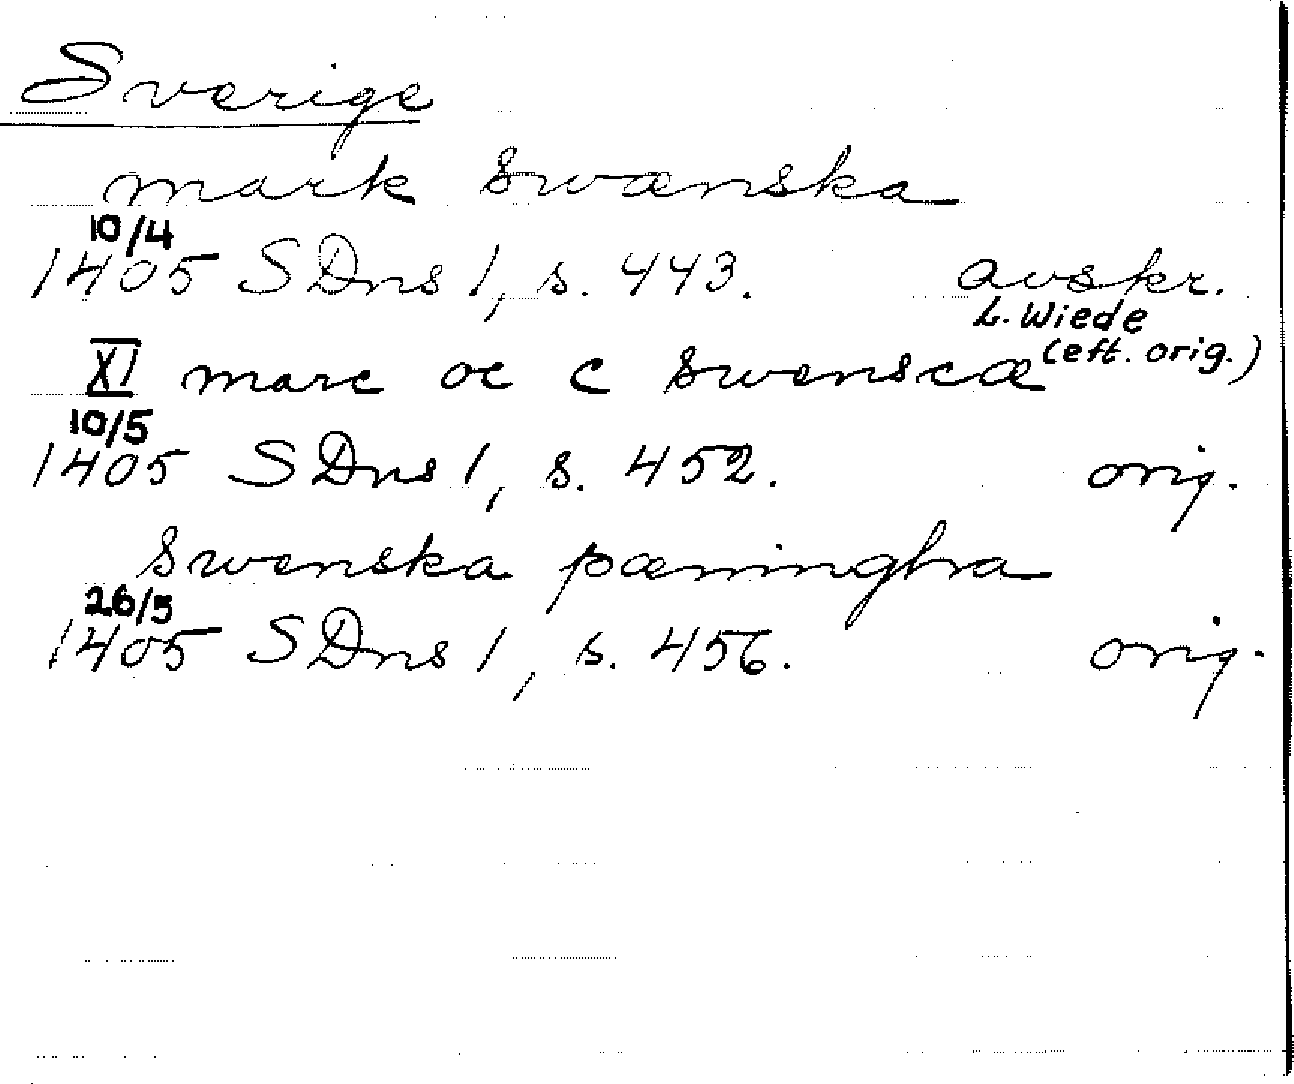 Sverige
mark swænska
10/4
1405 SDns 1, s. 443. avskr.
L. Wiede
(eft. orig.)
XI marc oc c swenscæ
10/5
1405 SDns 1, s. 452. orig.
swenska pæningha
26/5
1405 SDns 1, s. 456. orig.